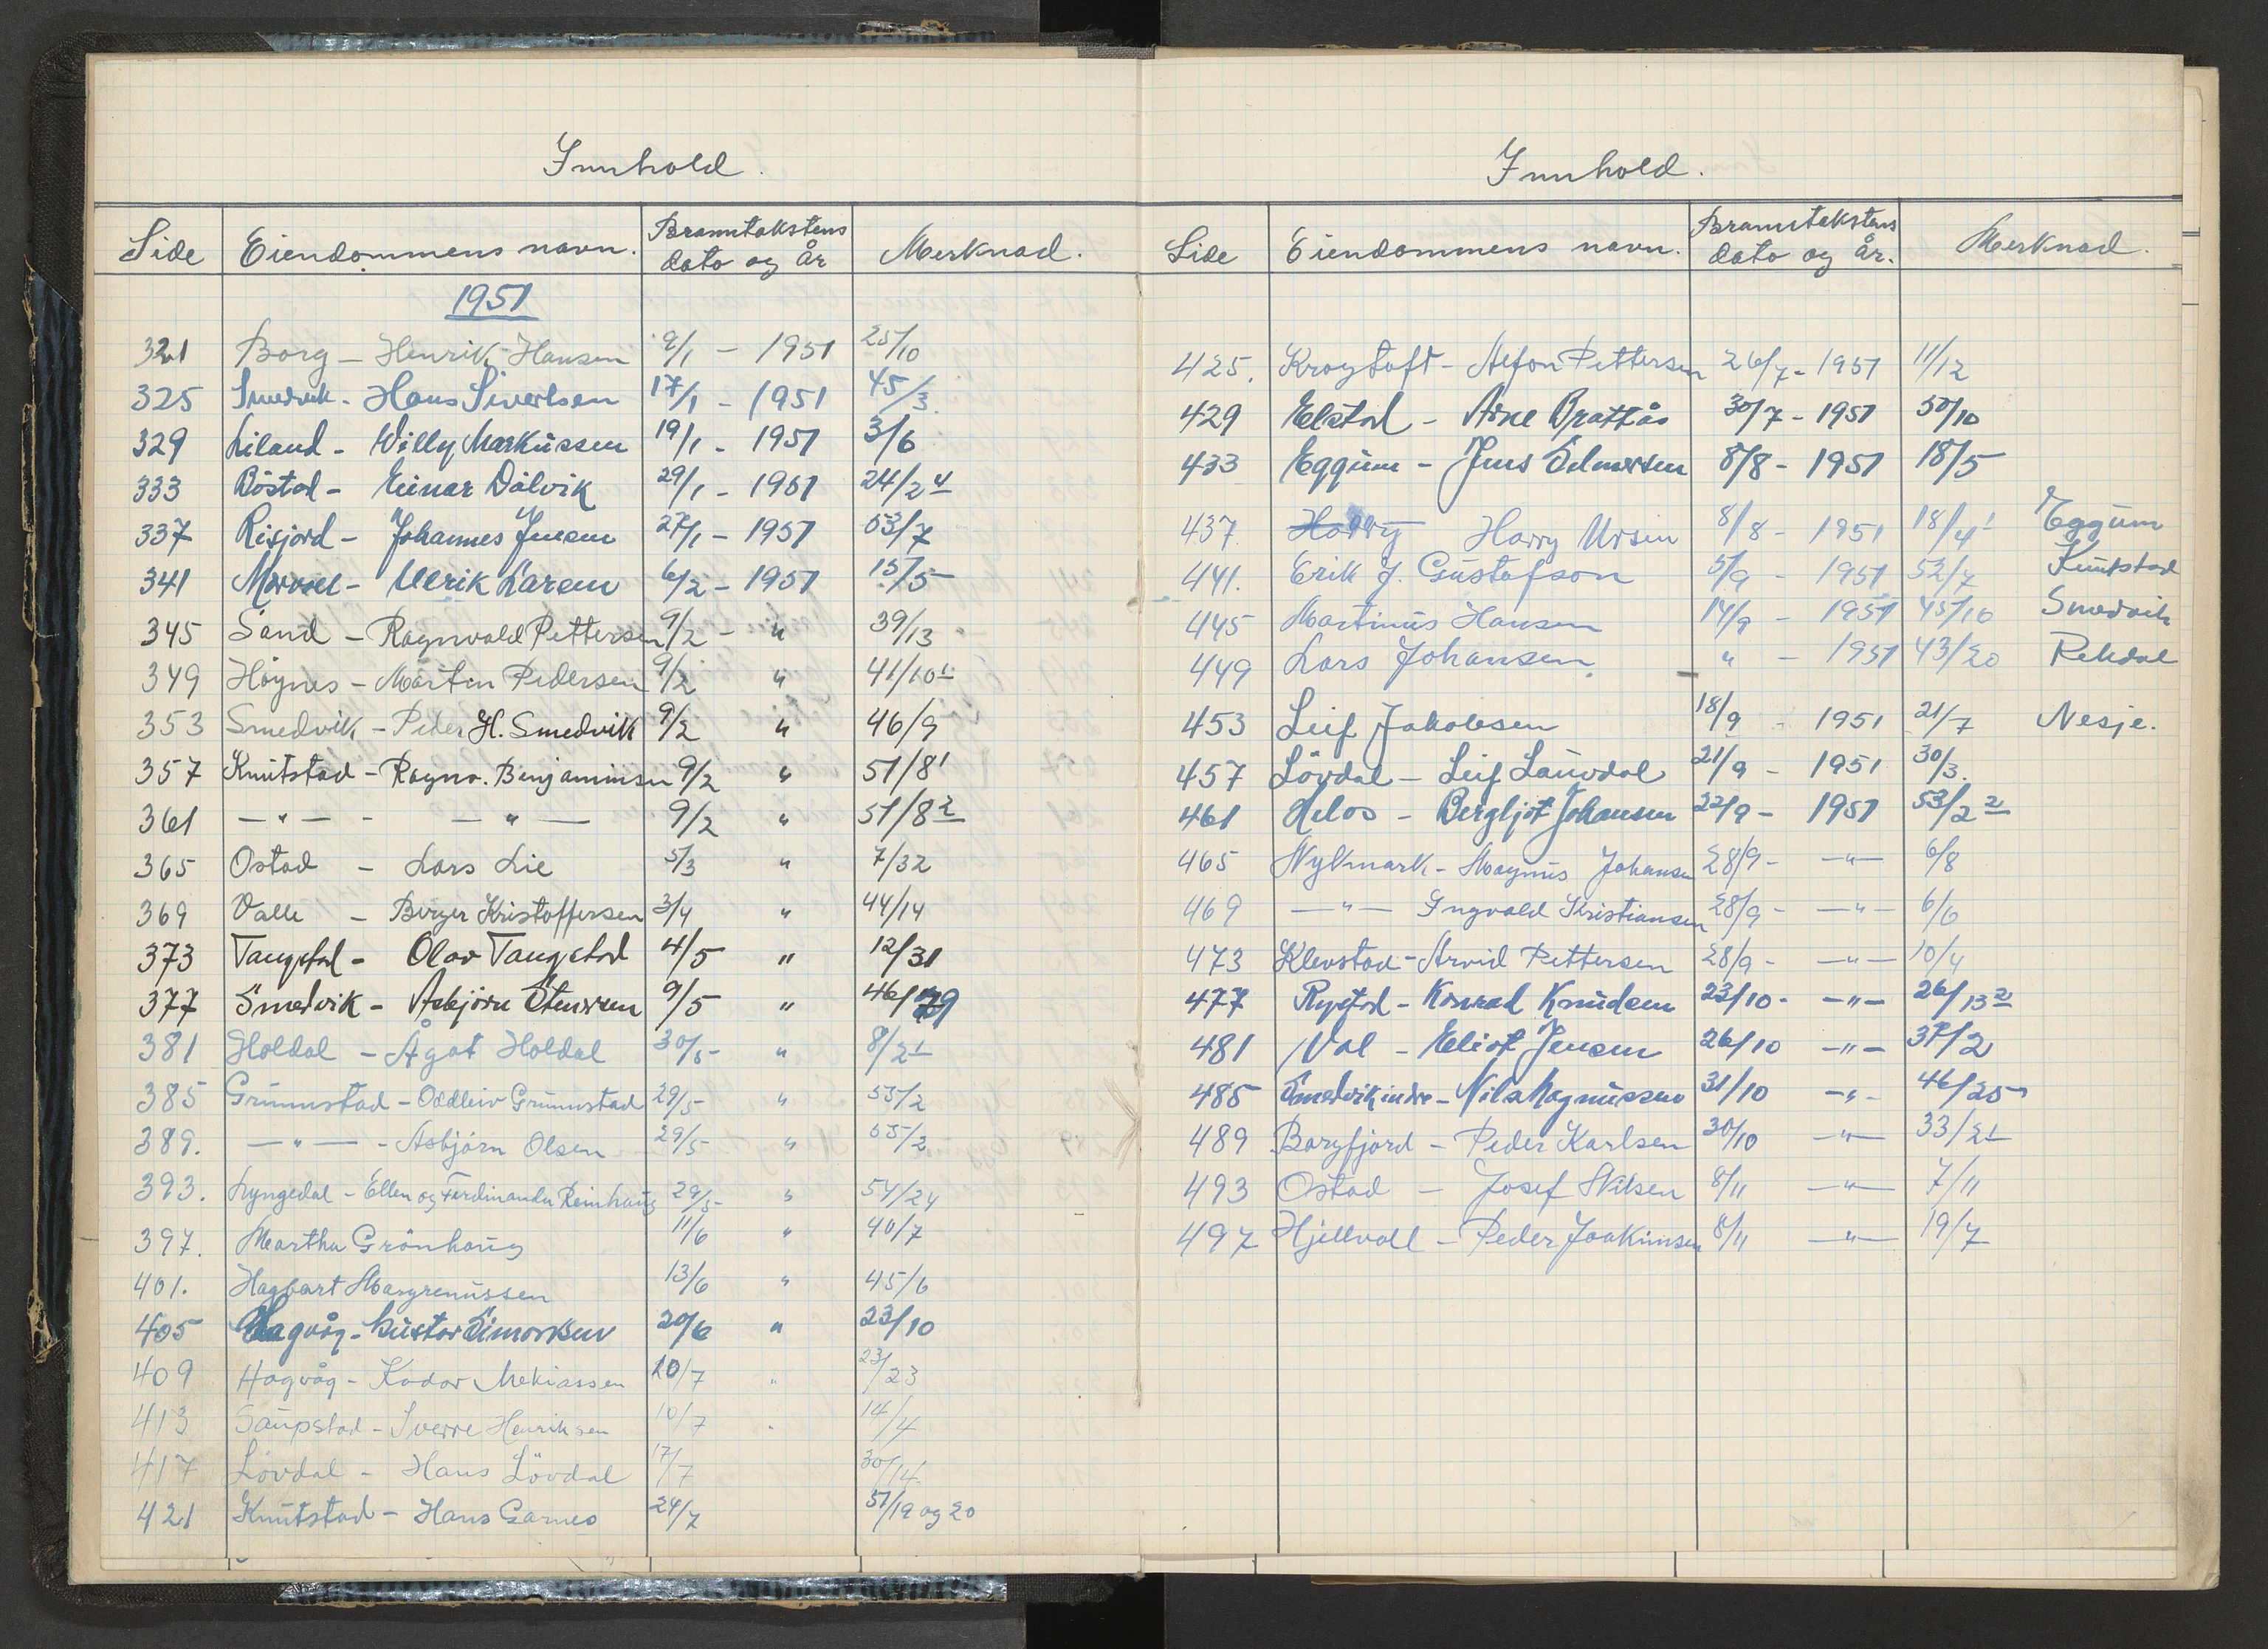 Innhold.
Side Eiendommens navn. Branntakstens dato og år Merknad.
1951
321 Borg - Henrik Hansen 9/1 - 1951 25/10
325 Smedvik - Hans Sivertsen 17/1 - 1951 45/3
329 Liland - Willy Markussen 19/1 - 1951 3/6
333 Böstad - Einar Dalvik 29/1 - 1951 24/2 4
337 Risjord - Johannes Jensen 27/1 - 1951 53/7
341 Ulrik Larsen 6/2 - 1951 15/5
345 Sand - Ragnvald Pettersen 9/2 - " 39/13
349 Höynes - Martin Pedersen 9/2 " 41/10 1
353 Smedvik - Peder H. Smedvik 9/2 " 46/9
357 Knutstad - Ragnv. Benjaminsen 9/2 " 51/8 1
361 — " — - — " — 9/2 " 51/8 2
365 Ostad - Lars Lie 5/3 " 7/32
369 Valle - Birger Kristoffersen 3/4 " 44/14
373 Tangstad - Olav Tangstad 4/5 " 12/31
377 Smedvik - Asbjörn Stensen 9/5 " 46/29
381 Holdal - Ågot Holdal 30/5 - " 8/2 1
385 Grunnstad - Oddleiv Grunnstad 29/5 " 55/2
389. — " — - Asbjörn Olsen 29/5 " 55/2
393. Lyngedal - Ellen og Ferdinanda Reinhaug 29/5 - " 54/24
397. Martha Grönhaug 11/6 " 40/7
401. Hagbart Magrenussen 13/6 " 45/6
405 Hagvåg - Gustav Simonsen 20/6 " 23/10
409 Hagvåg - Kodor Mekiassen 10/7 " 23/23
413 Saupstad - Sverre Henriksen 10/7 " 14/4
417 Lövdal - Hans Lövdal 17/7 30/14
421 Knutstad - Hans Garnes 24/7 51/19 og 20
Innhold.
Side Eiendommens navn. Branntakstens dato og år. Merknad.
425. Krogtoft - Alfon Pettersen 26/7 - 1951 11/12
429 Elstad - Arne Brattås 30/7 - 1951 50/10
433 Eggum - Jens Selmersen 8/8 - 1951 18/5
437. Harry Harry Ursin 8/8 - 1951 18/4 1 Eggum
441. Erik J. Gustafson 5/9 - 1951 52/7 Knutstad
445 Martinus Hansen 14/9 - 1951 45/10 Smedvik
449 Lars Johansen " - 1951 43/20 Rekdal
453 Leif Jakobsen 18/9 - 1951 21/7 Nesje.
457 Lövdal - Leif Lauvdal 21/9 - 1951 30/3.
461 Helos - Bergljot Johansen 22/9 - 1951 53/2 2
465 Nykmark - Magnus Johansen 28/9 - — " — 6/8
469 — " — Ingvald Kristiansen 28/9 - — " — 6/6
473 Klevstad - Arvid Pettersen 28/9 - — " — 10/4
477 Rystad - Konrad Knudsen 23/10 - - " - 26/13 2
481 Val - Eliot Jensen 26/10 - " - 37/2
485 Smedvik indre - Nils Magnussen 31/10 - " - 46/25
489 Borgfjord - Peder Karlsen 30/10 — " — 33/2 1
493 Ostad - Josef Nilsen 8/11 — " — 7/11
497 Hjellvoll - Peder Joakimsen 8/11 — " — 19/7